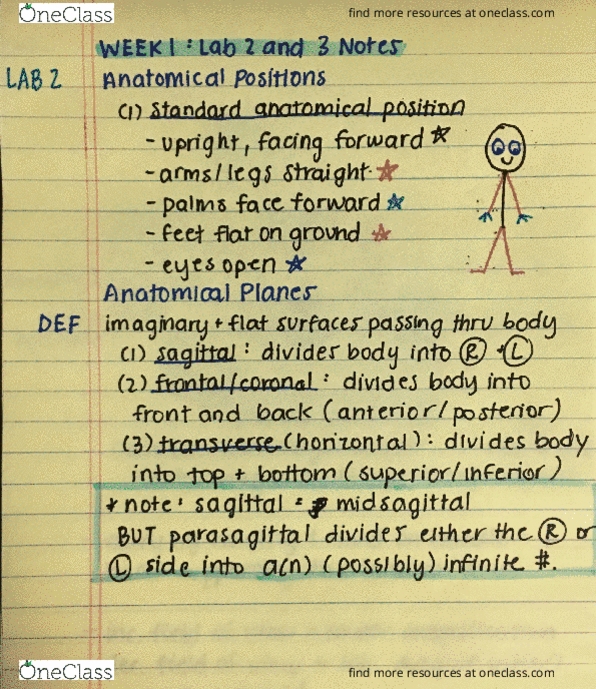 OneClass
find more resources at oneclass.com
WEEK 1 : Lab 2 and 3 Notes
LAB 2 Anatomical Positions
(1) standard anatomical position
- upright, facing forward ☆
- arms/legs straight ☆
- palms face forward ☆
- feet flat on ground ☆
- eyes open ☆
Anatomical Planes
DEF imaginary + flat surfaces passing thru body
(1) sagittal : divides body into Ⓡ + Ⓛ
(2) frontal/coronal : divides body into
front and back (anterior/posterior)
(3) transverse (horizontal) : divides body
into top + bottom (superior/inferior)
* note: sagittal = midsagittal
BUT parasagittal divides either the Ⓡ or
Ⓛ side into a(n) (possibly) infinite #.
OneClass
find more resources at oneclass.com